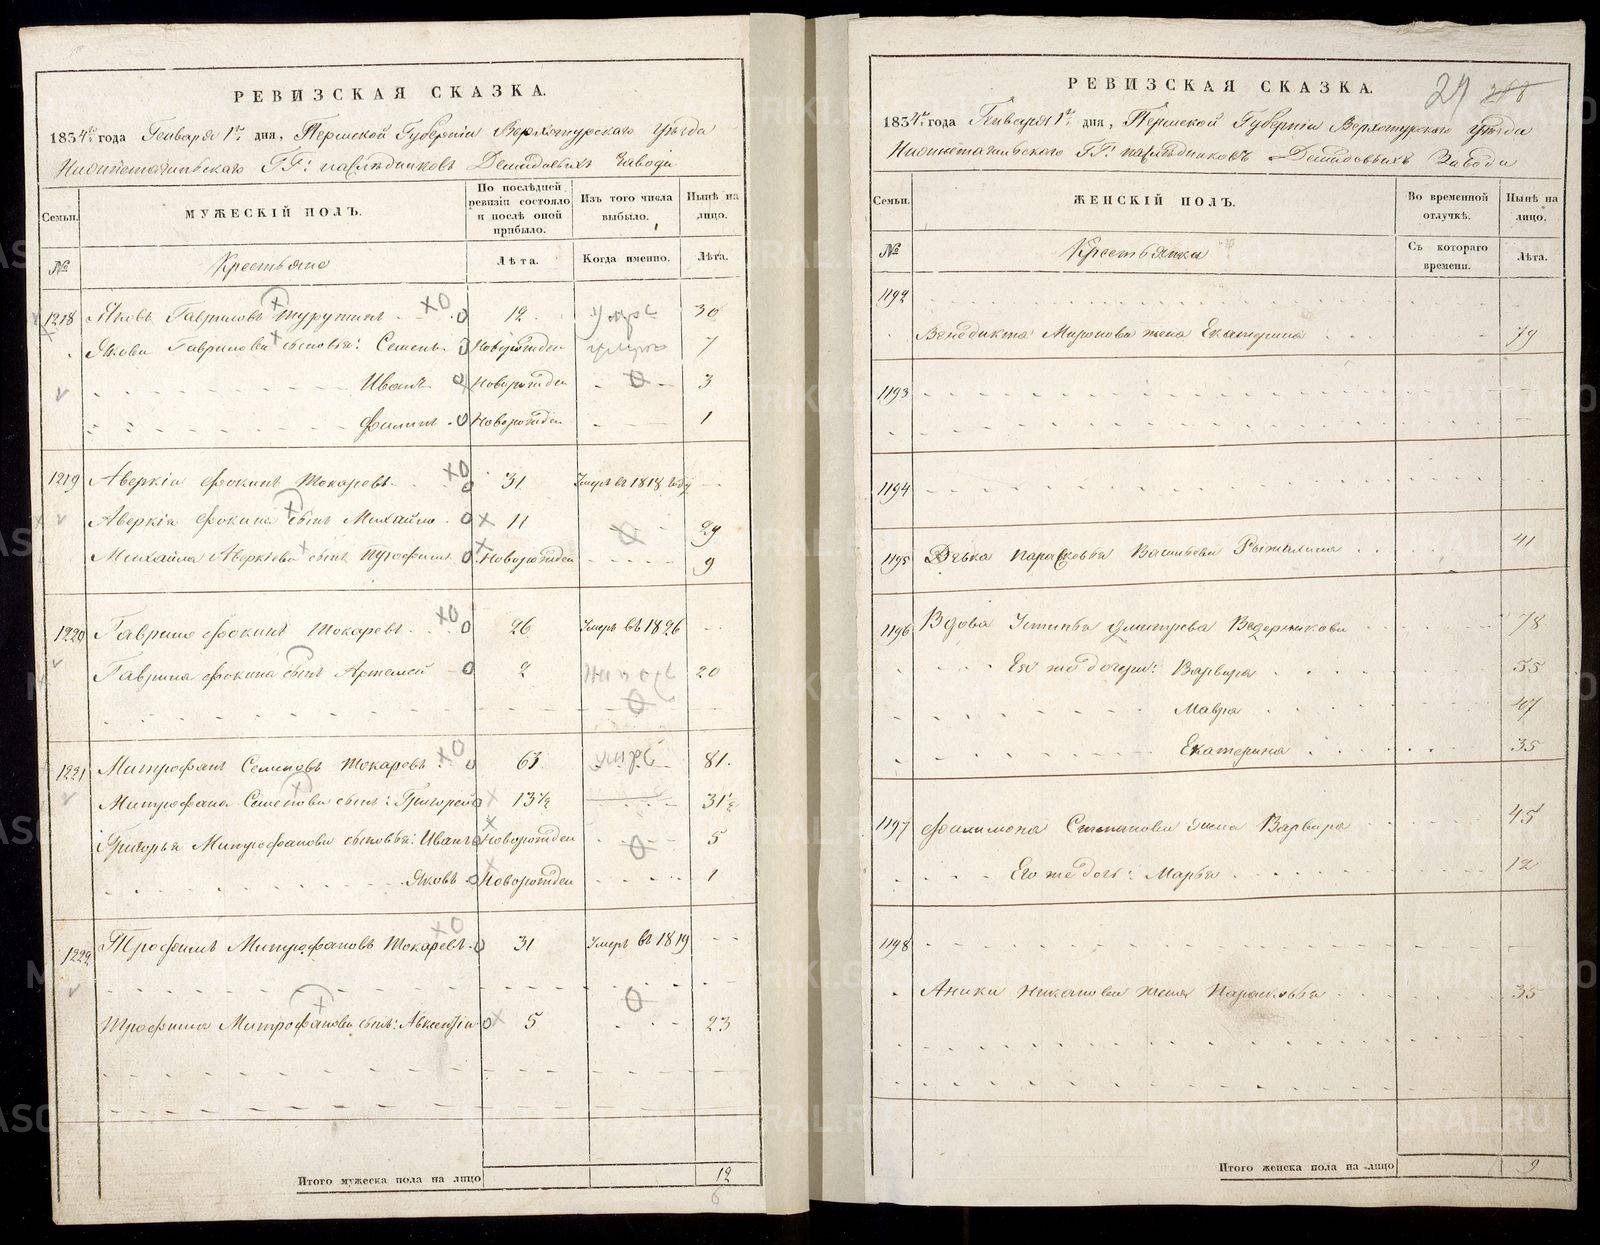 РЕВИЗСКАЯ СКАЗКА.
1834го года Генваря 1го дня, Пермской Губерніи Верхотурскаго Уѣзда
Нижнетагильскаго ГГ: наслѣдниковъ Демидовыхъ Завода
Семьи. МУЖЕСКІЙ ПОЛЪ. По послѣдней ревизіи состояло и послѣ оной прибыло. Изъ того числа выбыло. Нынѣ на лицо.
№ Крестьяне Лѣта. Когда именно. Лѣта.
1218 Яковъ Гавриловъ 12 30
Якова Гаврилова сыновья: Семенъ Новорожден 7
Иванъ Новорожден 3
Филипъ Новорожден 1
1219 Аверкій Фокинъ Токаревъ 31 Умеръ въ 1818 году
Аверкія Фокина сынъ Михайло 11 29
Михайла Аверкіева сынъ Новорожден 9
1220 Гаврило Фокинъ Токаревъ 26 Умеръ въ 1826
Гаврила Фокина сынъ Артемей 2 20
1221 Митрофанъ Семеновъ Токаревъ 63 81.
Митрофана Семенова сынъ: Григорей 13½ 31½
Григорья Митрофанова сыновья: Иванъ Новорожден 5
Яковъ Новорожден 1
1222 Трофимъ Митрофановъ Токаревъ 31 Умеръ въ 1819
Трофима Митрофанова сынъ: Авксентій 5 23
Итого мужеска пола на лицо 12
6
29 218
РЕВИЗСКАЯ СКАЗКА.
1834го года Генваря 1го дня, Пермской Губерніи Верхотурскаго Уѣзда
Нижнетагильскаго ГГ: наслѣдниковъ Демидовыхъ Завода
Семьи. ЖЕНСКІЙ ПОЛЪ. Во временной отлучкѣ. Нынѣ на лицо.
№ Крестьянки Съ котораго времени. Лѣта.
1192
Венедикта Миронова жена Екатерина 79
1193
1194
1195 Дѣвка Парасковья Васильева 41
1196 Вдова Устинья Дмитрева Ведерникова 78
Его же дочери: Варвара 55
Мавра 47
Екатерина 35
1197 Филимона Степанова жена Варвара 45
Его же дочь: Марья 12
1198
Аники жена Парасковья 35
Итого женска пола на лицо 9
METRIKI.GASO-URAL.RU